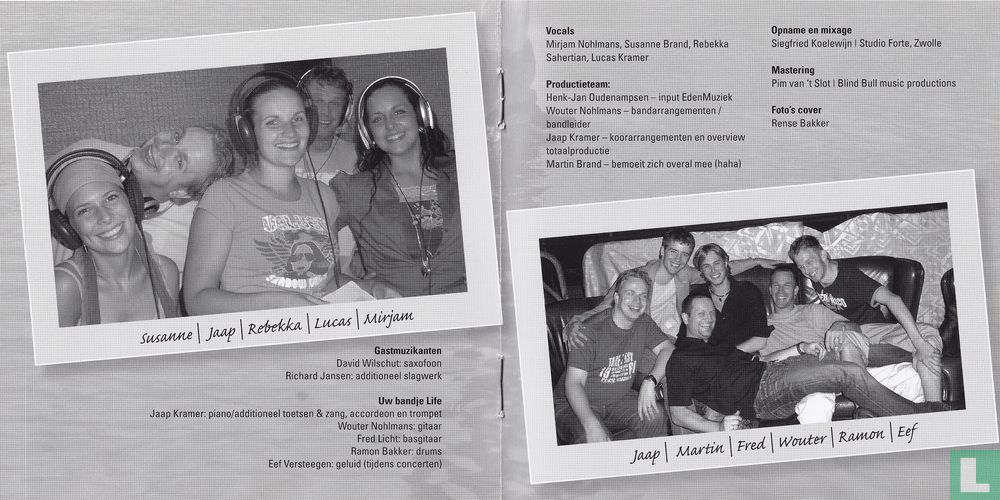 Susanne | Jaap | Rebekka | Lucas | Mirjam
Gastmuzikanten
David Wilschut: saxofoon
Richard Jansen: additioneel slagwerk
Uw bandje Life
Jaap Kramer: piano/additioneel toetsen & zang, accordeon en trompet
Wouter Nohlmans: gitaar
Fred Licht: basgitaar
Ramon Bakker: drums
Eef Versteegen: geluid (tijdens concerten)
Vocals
Mirjam Nohlmans, Susanne Brand, Rebekka
Sahertian, Lucas Kramer
Productieteam:
Henk-Jan Oudenampsen – input EdenMuziek
Wouter Nohlmans – bandarrangementen /
bandleider
Jaap Kramer – koorarrangementen en overview
totaalproductie
Martin Brand – bemoeit zich overal mee (haha)
Opname en mixage
Siegfried Koelewijn | Studio Forte, Zwolle
Mastering
Pim van 't Slot | Blind Bull music productions
Foto's cover
Rense Bakker
Jaap | Martin | Fred | Wouter | Ramon | Eef
L